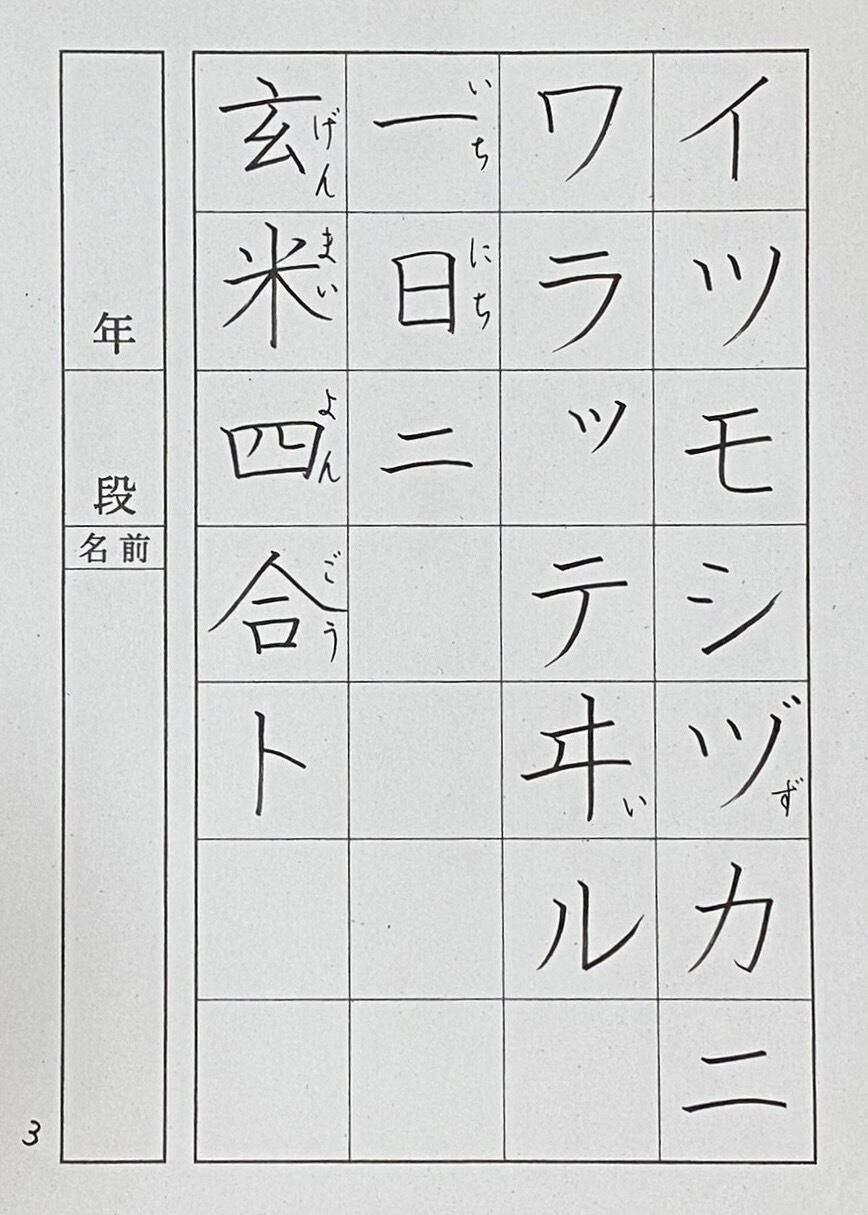 イツモシヅカニ
ず
ワラッテヰル
い
一日ニ
いちにち
玄米四合ト
げんまいよんごう
年
段
名前
3